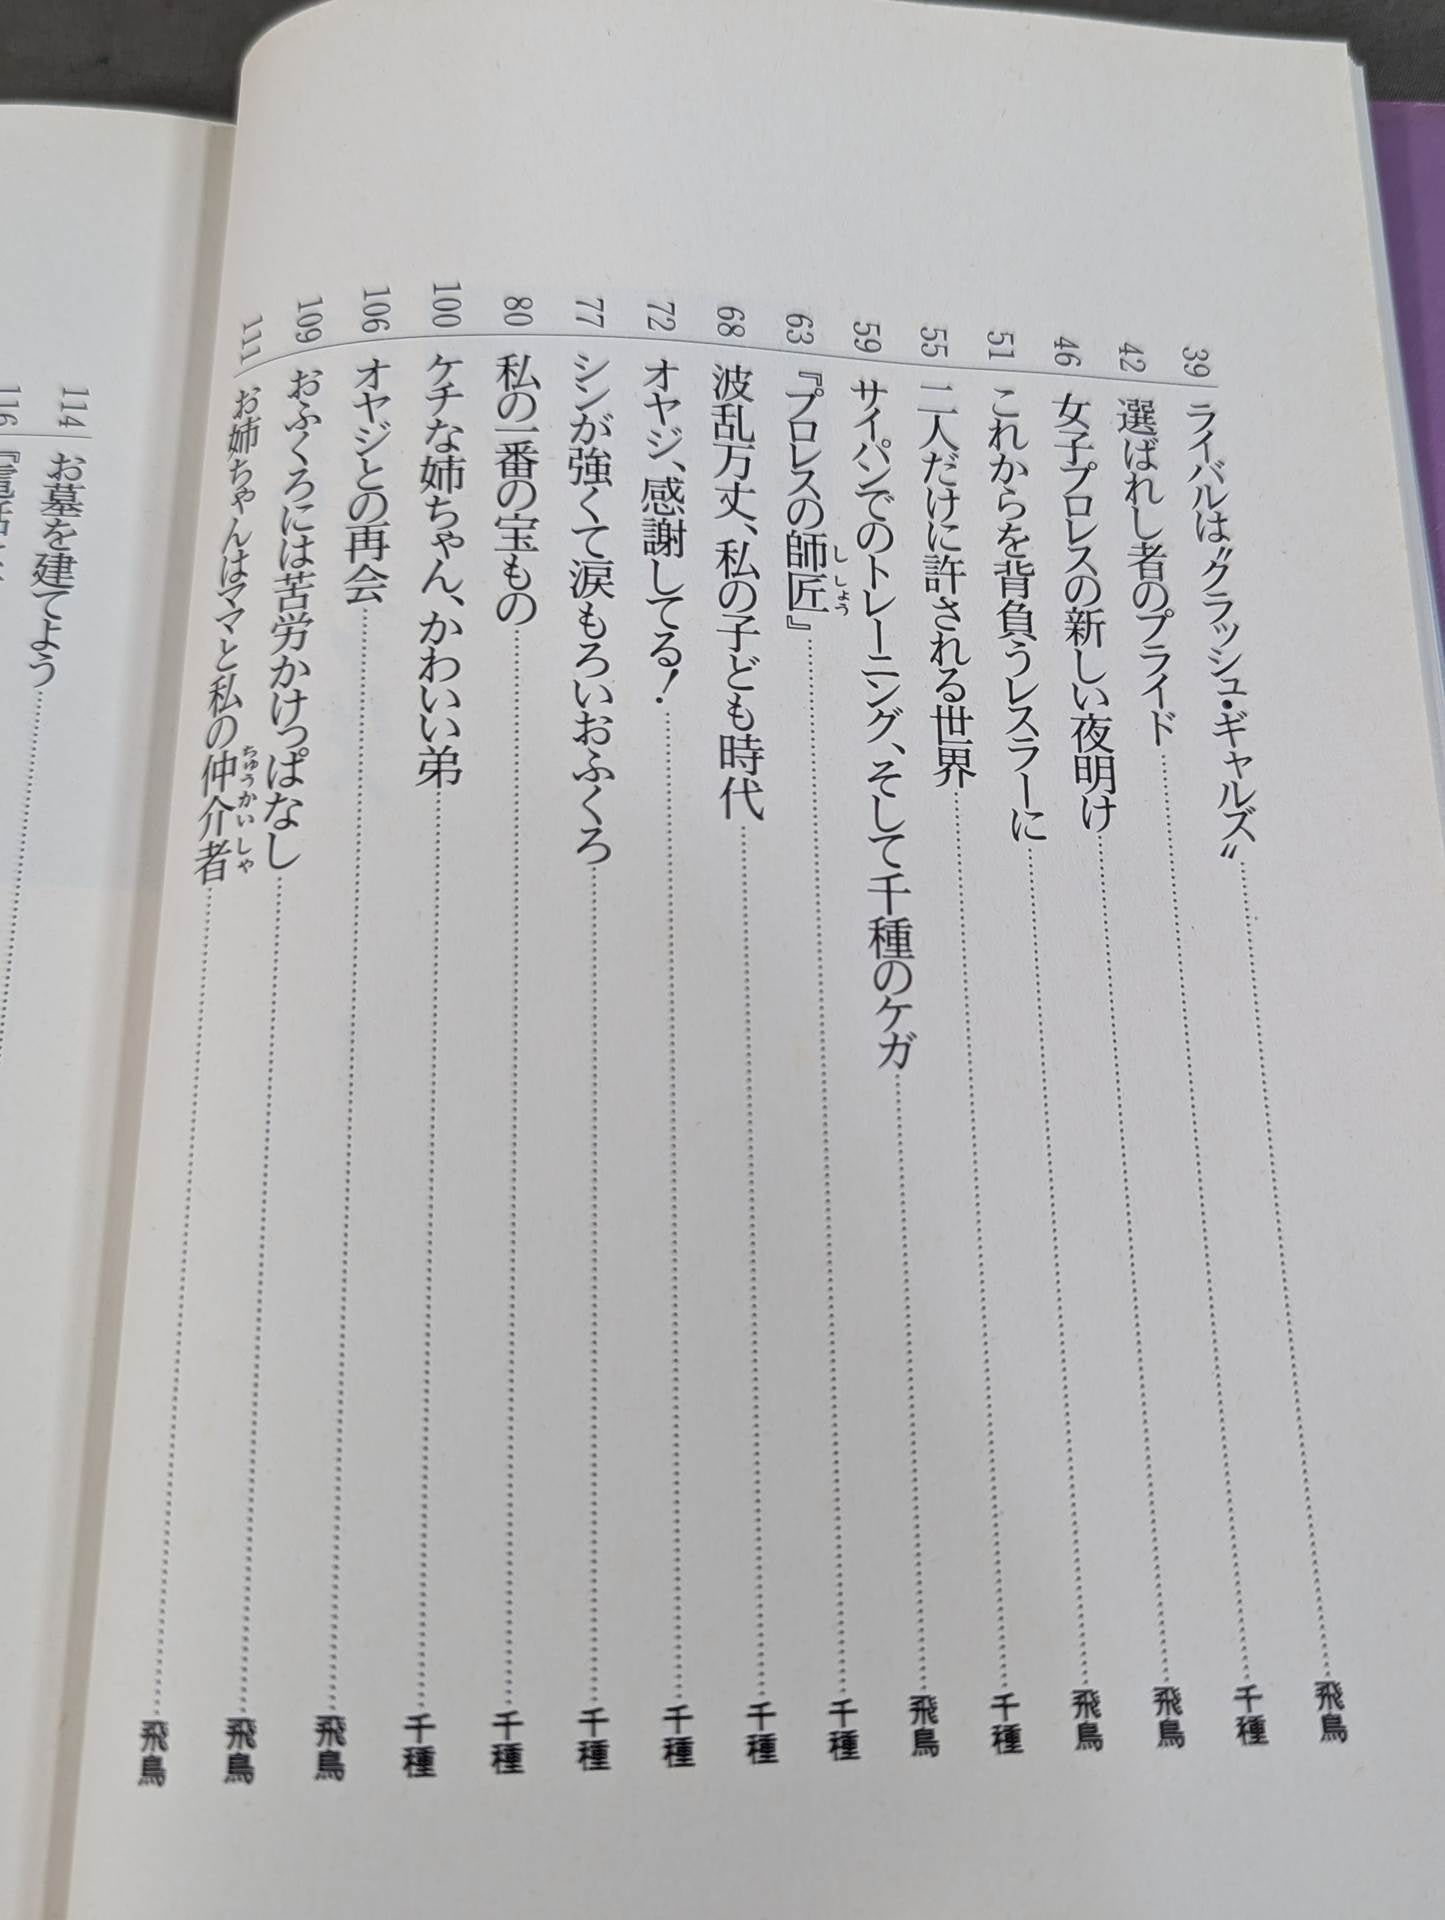 39 ライバルは〝クラッシュ・ギャルズ〟……飛鳥
42 選ばれし者のプライド……千種
46 女子プロレスの新しい夜明け……飛鳥
51 これからを背負うレスラーに……飛鳥
55 二人だけに許される世界……千種
59 サイパンでのトレーニング、そして千種のケガ……飛鳥
63 『プロレスの師匠』……千種
ししょう
68 波乱万丈、私の子ども時代……千種
72 オヤジ、感謝してる！……千種
77 シンが強くて涙もろいおふくろ……千種
80 私の一番の宝もの……千種
100 ケチな姉ちゃん、かわいい弟……千種
106 オヤジとの再会……飛鳥
109 おふくろには苦労かけっぱなし……飛鳥
111 お姉ちゃんはママと私の仲介者……飛鳥
ちゅうかいしゃ
114 お墓を建てよう……
116